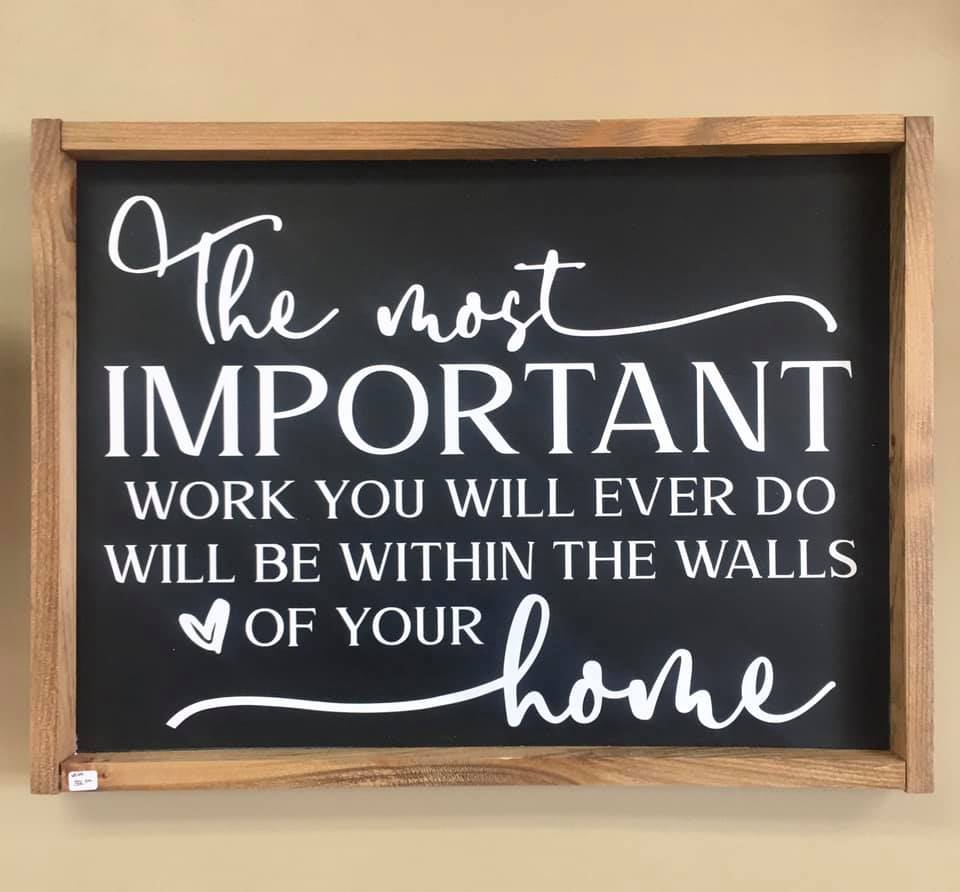 The most
IMPORTANT
WORK YOU WILL EVER DO
WILL BE WITHIN THE WALLS
OF YOUR
home